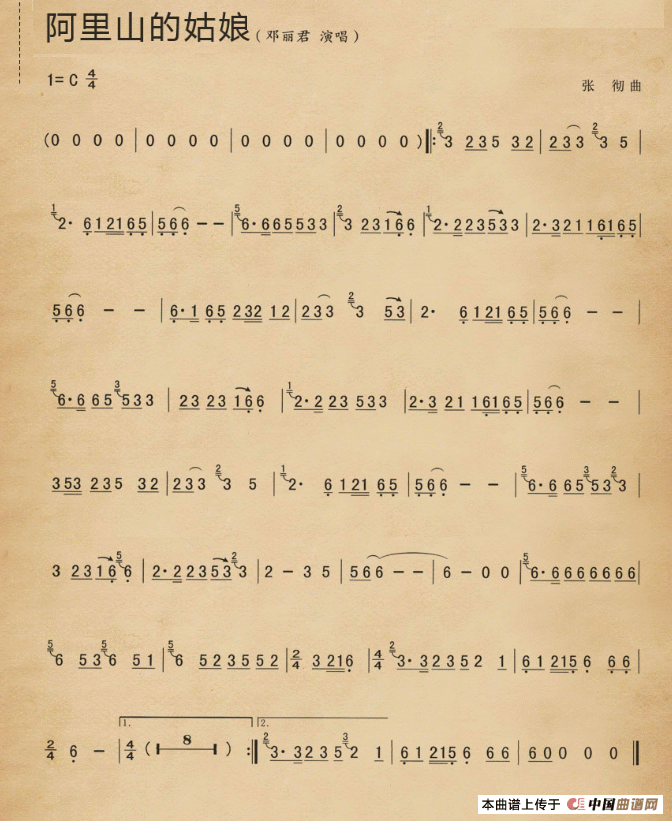 阿里山的姑娘（邓丽君 演唱）
1= C 4/4
张 彻 曲
(0 0 0 0 | 0 0 0 0 | 0 0 0 0 | 0 0 0 0 ) ‖: 2 3 235 32 | 233 2 3 5 |
1 2· 612165 | 566 - - | 5 6·665533 | 2 3 23166 | 1 2·223533 | 2·32116165 |
566 - - | 6·1 65 232 12 | 233 2 3 53 | 2· 612165 | 566 - - |
5 6·6 65 3 533 | 23 23 166 | 1 2·2 23 533 | 2·3 21 16165 | 566 - - |
353 235 32 | 233 2 3 5 | 1 2· 6 121 65 | 566 - - | 5 6·6 65 3 53 2 3 |
3 2316 5 6 | 2·22353 2 3 | 2 - 3 5 | 566 - - | 6 - 0 0 | 5 6·6666666 |
5 6 53 5 6 51 | 5 6 523552 | 2/4 3 216 | 4/4 2 3·32352 1 | 61 215 6 66 |
2/4 6 - | 1. 4/4 ( 8 ) :‖ 2. 2 3·3235 3 2 1 | 61 215 6 66 | 600 0 0 ‖
本曲谱上传于 中国曲谱网